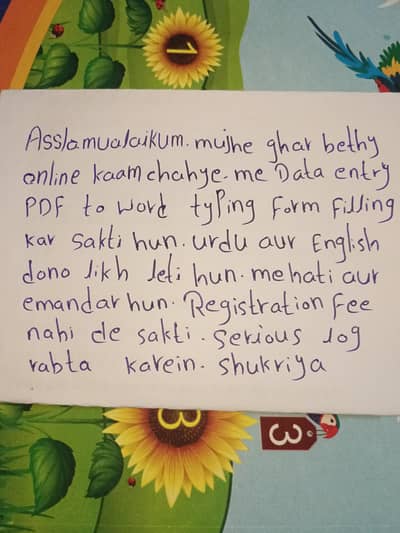 1
Asslamualaikum. mujhe ghar bethy
online kaam chahye. me Data entry
PDF to word typing form filling
kar sakti hun. urdu aur English
dono likh leti hun. mehati aur
emandar hun. Registration fee
nahi de sakti. serious log
rabta karein. shukriya
3
3